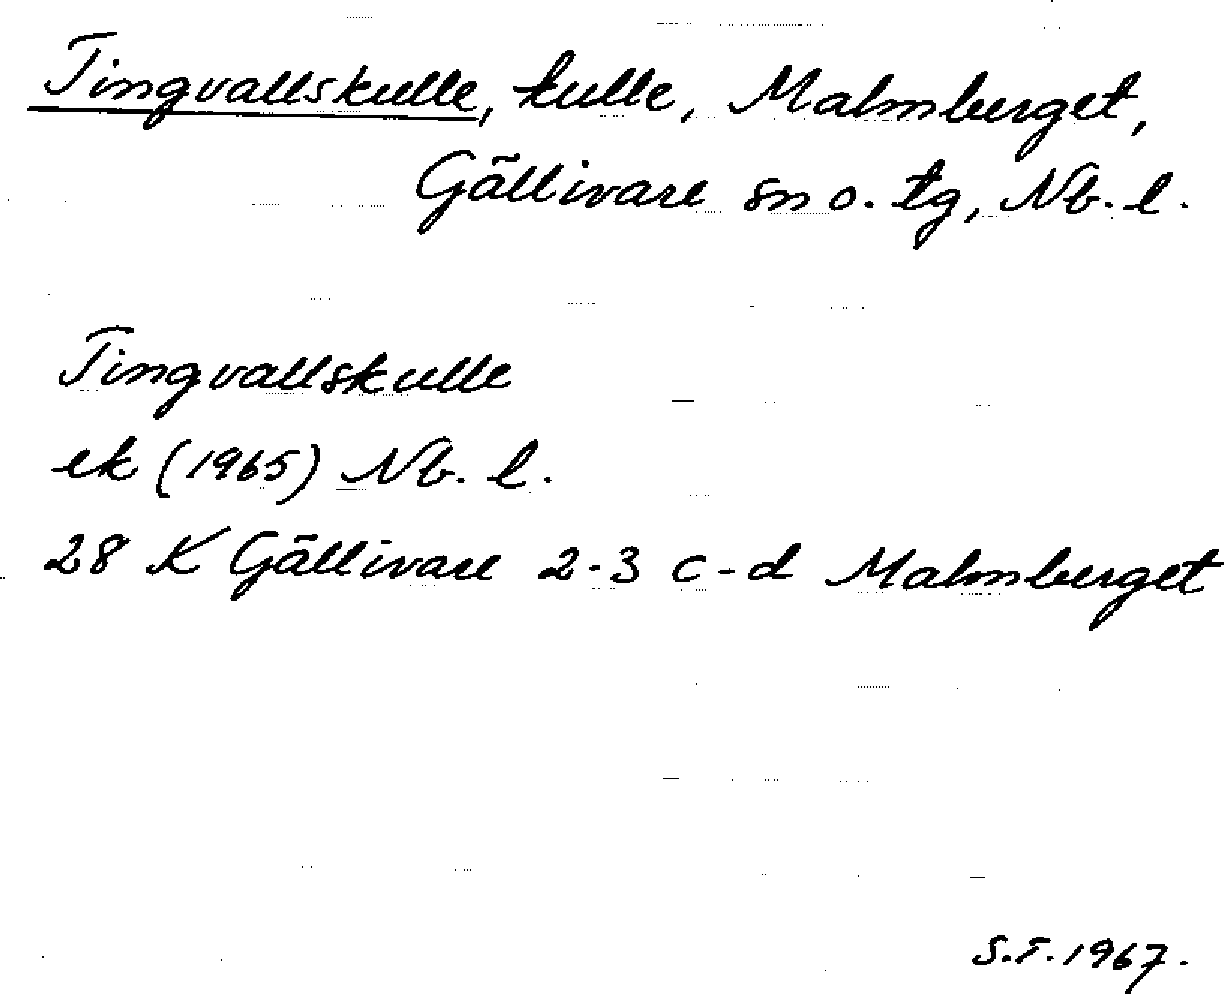 Tingvallskulle, kulle, Malmberget,
Gällivare sn o. tg, Nb. l.
Tingvallskulle
ek (1965) Nb. l.
28 K Gällivare 2-3 c-d Malmberget
S.F. 1967.